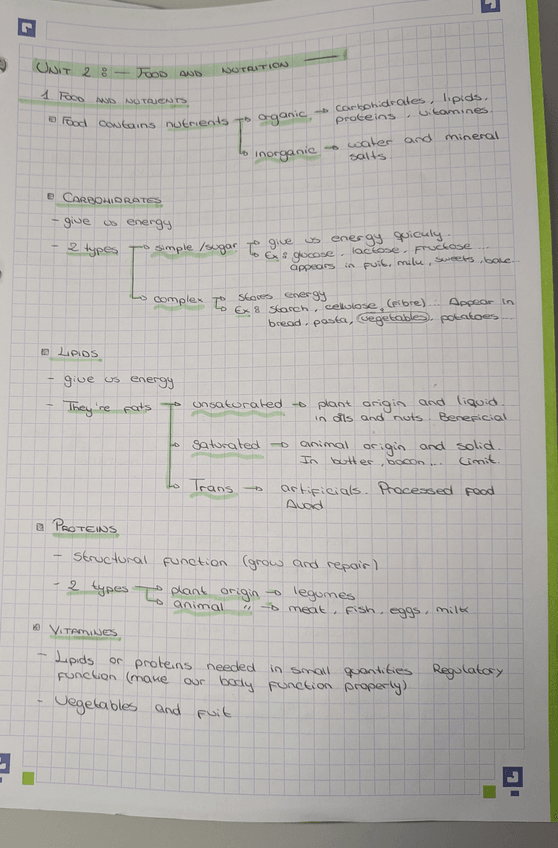 UNIT 2: — FOOD AND NUTRITION —
1 FOOD AND NUTRIENTS
Food contains nutrients → organic → carbohidrates, lipids,
proteins, vitamines.
→ inorganic → water and mineral
salts.
CARBOHIDRATES
- give us energy
- 2 types → simple/sugar → give us energy quickly.
→ Ex: glucose, lactose, fructose...
appears in fuit, milk, sweets,
→ complex → stores energy
→ Ex: starch, cellulose, (fibre)... Appear in
bread, pasta, (vegetables), potatoes...
LIPIDS
- give us energy
- They're fats → unsaturated → plant origin and liquid.
in oils and nuts. Beneficial
→ saturated → animal origin and solid.
In butter, bacon... Limit.
→ Trans → artificials. Processed Food
Avoid
PROTEINS
- structural function (grow and repair)
- 2 types → plant origin → legumes
→ animal " → meat, fish, eggs, milk
VITAMINES
- Lipids or proteins needed in small quantities Regulatory
function (make our body function properly)
- Vegetables and fuit